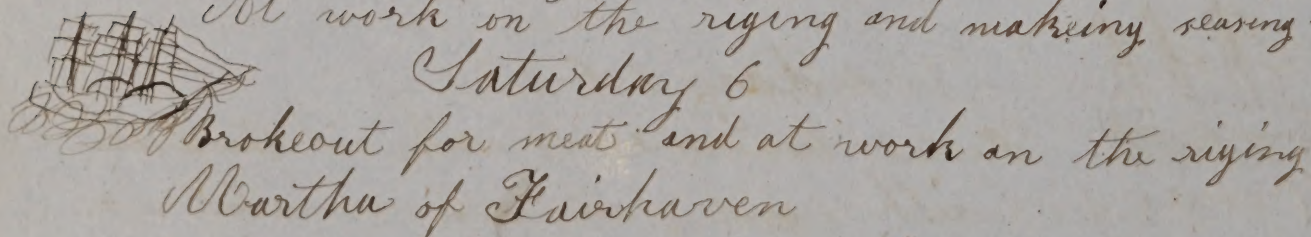 At work on the riging and makeing seasing
Saturday 6
Brokeout for meat and at work on the riging
Martha of Fairhaven